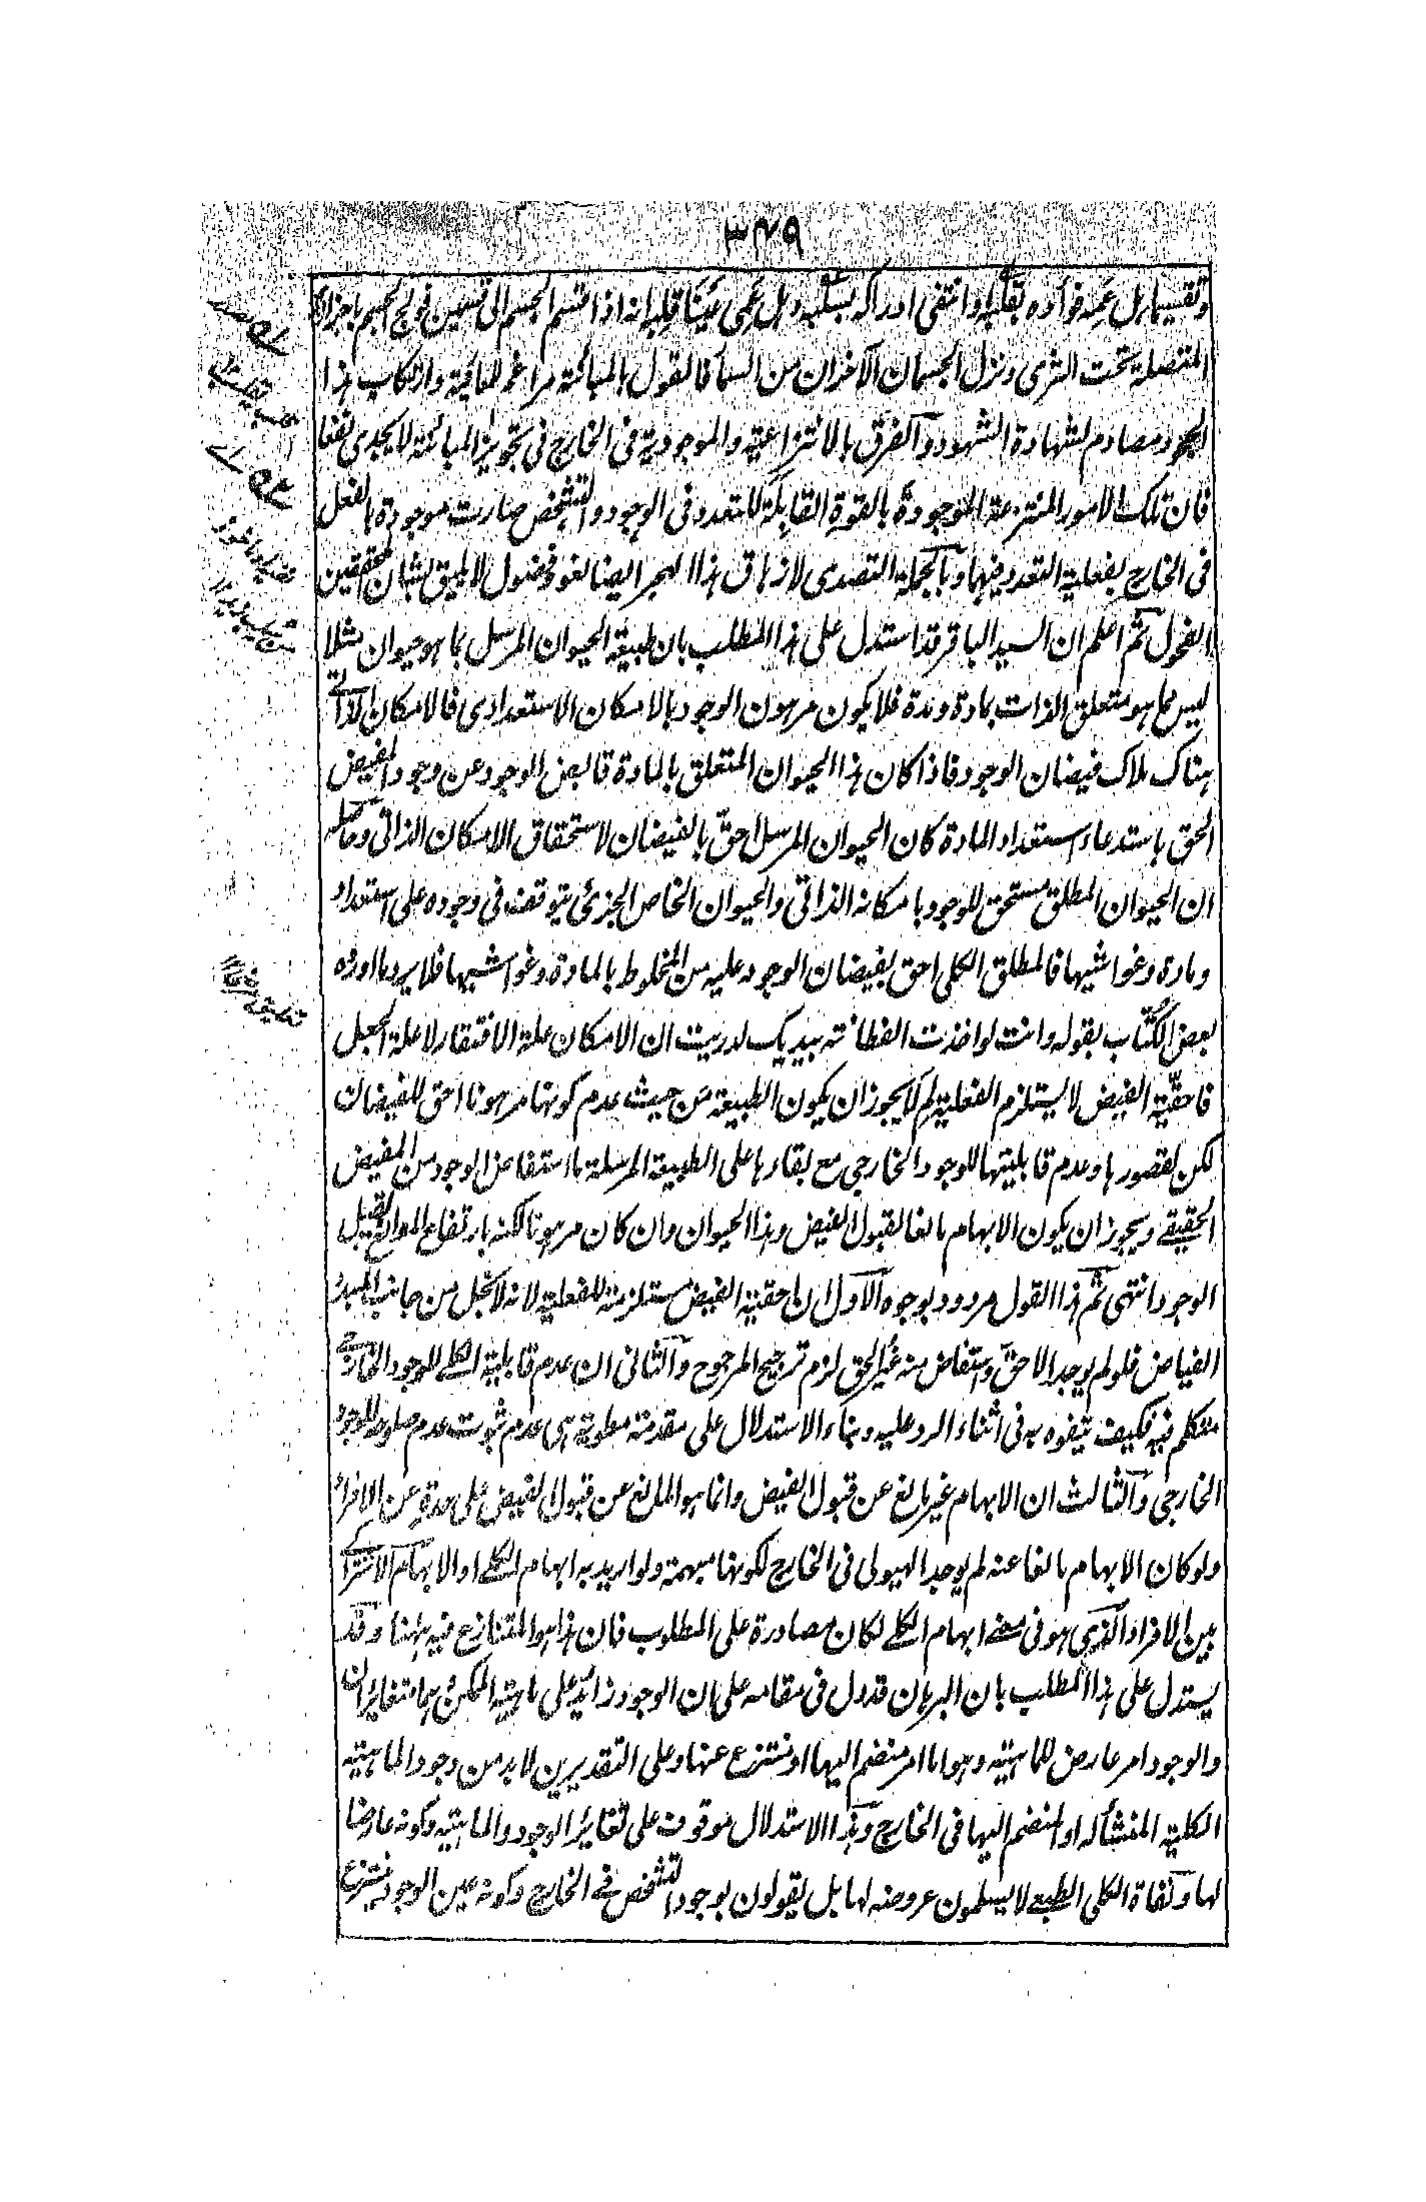 ٣٤٩
وتقسيما بل عمه فوأده بقلبه وانتفى ادراكه بسلبه وهل عمى عينا قلبه انه اذا قسم الجسم الى قسمين فولج الجسم باجزائه
المتصلة تحت الثرى ونزل الجسمان الآخران من السماء فالقول بالمبائنة مراغم للمائية وارتكاب هذا
مصادم لشهادة الشهود والفرق بالانتزاعية والموجودية فى الخارج فى تجويز المبائنة لا يجدى نفعا
فان تلك الامور المنتزعة الموجودة بالقوة القابلة للتعدد فى الوجود والتشخص صارت موجودة بالفعل
فى الخارج بفعلية التعدد فيها وبالجملة التصدى لازهاق هذا الهجر ايضا لغو وفضول لا يليق بشان المحققين
الفحول ثم اعلم ان السيد الباقر قد استدل على هذا المطلب بان طبيعة الحيوان المرسل بما هو حيوان مثلا
ليس مما هو متعلق الذات بمادة ومدة فلا يكون مرهون الوجود بالامكان الاستعدادى فالامكان الذاتى
هناك ملاك فيضان الوجود فاذا كان هذا الحيوان المتعلق بالمادة قابض الوجود عن وجود المفيض
الحق باستدعاء استعداد المادة كان الحيوان المرسل احق بالفيضان لاستحقاق الامكان الذاتى وحاصله
ان الحيوان المطلق مستحق للوجود بامكانه الذاتى والحيوان الخاص الجزئى يتوقف فى وجوده على استعداد
ومادة وغواشيها فالمطلق الكلى احق بفيضان الوجود عليه من المخلوط بالمادة وغواشيها فلا يرد ما اورده
بعض الكتاب بقوله وانت لو اخذت الفطانة بيديك لدريت ان الامكان علة الافتقار لا علة الجعل
فاحقية الفيض لا يستلزم الفعلية لم لا يجوز ان يكون الطبيعة من حيث عدم كونها مرهونا احق للفيضان
لكن لقصورها وعدم قابليتها للوجود الخارجى مع بقاءها على الطبيعة المرسلة ما استفاض الوجود من المفيض
الحقيقى ويجوز ان يكون الابهام مانعا لقبول الفيض وهذا الحيوان وان كان مرهونا لكنه بارتفاع الموانع لقبل
الوجود انتهى ثم هذا القول مردود بوجوه الاول ان احقية الفيض مستلزمة للفعلية لانه لا بخل من جانب المبدء
الفياض فلو لم يوجد الاحق واستفاض منه غير الحق لزم ترجيح المرجوح والثانى ان عدم قابلية الكلى للوجود الخارجى
متكلم فيه فكيف يتفوه به فى اثناء الرد عليه وبناء الاستدلال على مقدمة مطوية هى عدم ثبوت عدم صلوحه للوجود
الخارجى والثالث ان الابهام غير مانع عن قبول الفيض وانما هو المانع عن قبول الفيض على حدة عن الافراد
ولو كان الابهام مانعا عنه لم يوجد الهيولى فى الخارج لكونها مبهمة ولو اريد به ابهام الكلى او الابهام الاشتراكى
بين الافراد الذى هو فى معنى ابهام الكلى لكان مصادرة على المطلوب فان هذا هو المتنازع فيه ههنا وقد
يستدل على هذا المطلب بان البرهان قد دل فى مقامه على ان الوجود زائد على ماهية الممكن وهما متغايران
والوجود امر عارض للماهية وهو اما امر منضم اليها او منتزع عنها وعلى التقديرين لا بد من وجود الماهية
الكلية المنشأ له او المنضم اليها فى الخارج وهذا الاستدلال موقوف على تغاير الوجود والماهية وكونه عارضا
لها ونفاة الكلى الطبعى لا يسلمون عروضه لها بل يقولون بوجود التشخص فى الخارج وكونه عين الوجود منتزع